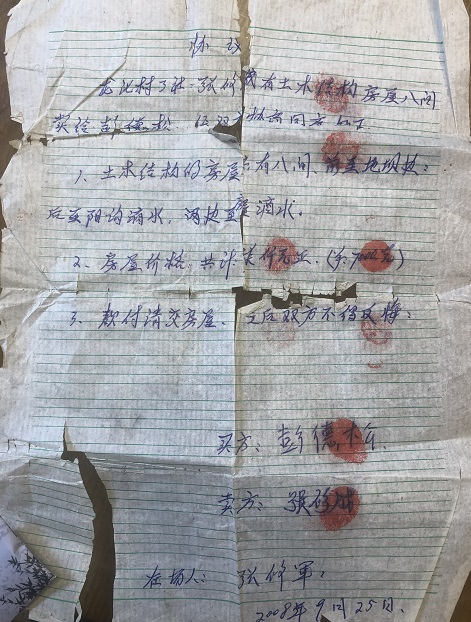 协议
龙沱村3社:张 有土木结构房屋八间
卖给彭德 双方 合同 如下
1、土木结构的房屋只有八间、前至地坝坎:
后至阳沟滴水,两 至 滴水。
2、房屋价格,共计 仟元正。(¥:7000元)
3、款付清交房屋、之后双方不得反悔:
买方:彭德
卖方:张
在场人:张 军:
2008年9月25日.